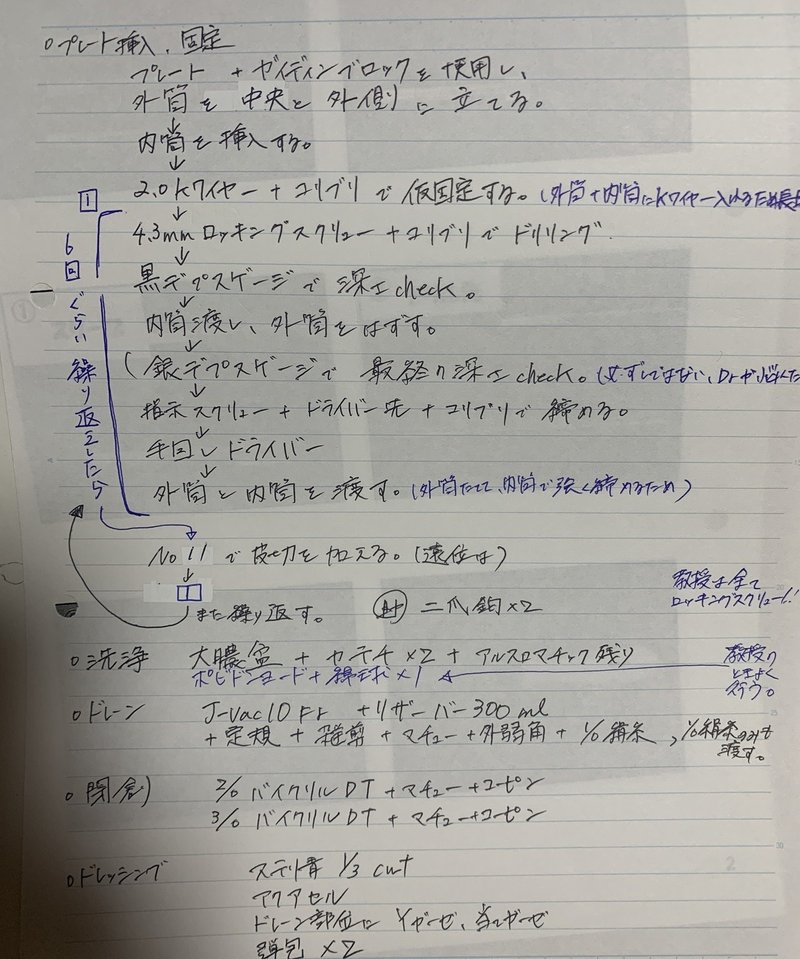 ○プレート挿入、固定
プレート + ガイディングブロックを使用し、
外筒を中央と外側に立てる。
↓
内筒を挿入する。
↓
1
2.0Kワイヤー + コリブリで仮固定する。(外筒+内筒にKワイヤー入れるため
↓
4.3mmロッキングスクリュー + コリブリでドリリング
↓
黒デプスゲージで深さcheck。
↓
内筒渡し、外筒をはずす。
↓
(銀デプスゲージで最終の深さcheck。(必ずしではない、Drが
↓
指示スクリュー + ドライバー先 + コリブリで締める。
↓
手回しドライバー
↓
外筒と内筒を渡す。(外筒たてて、内筒で強く締めるため)
6回ぐらい繰り返したら
No 11で皮切を加える。(遠位は)
↓
1
また繰り返す。
二爪鈎×2
教授は全て
ロッキングスクリュー!!
○洗浄 大膿盆 + カテチ×2 + アルスロマチック残り
ポビドンヨード+綿球×1
教授の
ときよく
行う。
○ドレーン J-Vac10Fr +リザーバー300ml
+定規+雑剪+マチュー+外弱角+1/0絹糸、1/0絹糸のみも
渡す。
○閉創 2/0 バイクリルDT +マチュー+コーピン
3/0 バイクリルDT + マチュー+コーピン
○ドレッシング ステリ青 1/3 cut
アクアセル
ドレーン部位に Yガーゼ、当てガーゼ
弾包×2